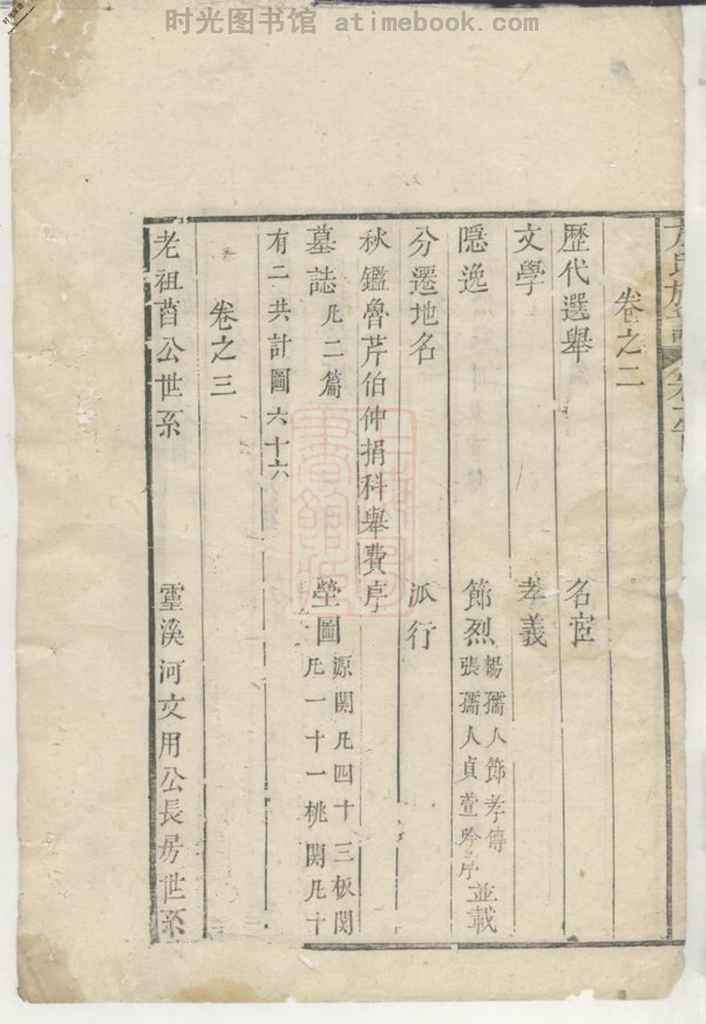 时光图书馆 atimebook.com
卷之二
歷代選舉 名宦
文學 孝義
隱逸 節烈 楊孺人節孝傳 張孺人貞萱吟序 並載
分遷地名 派行
秋鑑魯芹伯仲捐科舉費序
墓誌 凡二篇 塋圖 源関凡四十三板関 凡一十一桃関凡十
有二共計圖六十六
卷之三
老祖酋公世系 霊溪河文用公長房世系